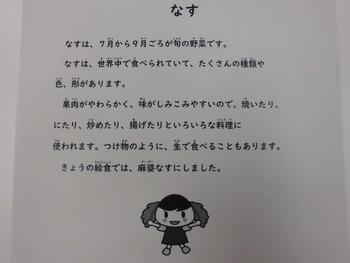 なす
なすは、7月から9月ごろが旬の野菜です。
なすは、世界中で食べられていて、たくさんの種類や
色、形があります。
果肉がやわらかく、味がしみこみやすいので、焼いたり、
にたり、炒めたり、揚げたりといろいろな料理に
使われます。つけ物のように、生で食べることもあります。
きょうの給食では、麻婆なすにしました。